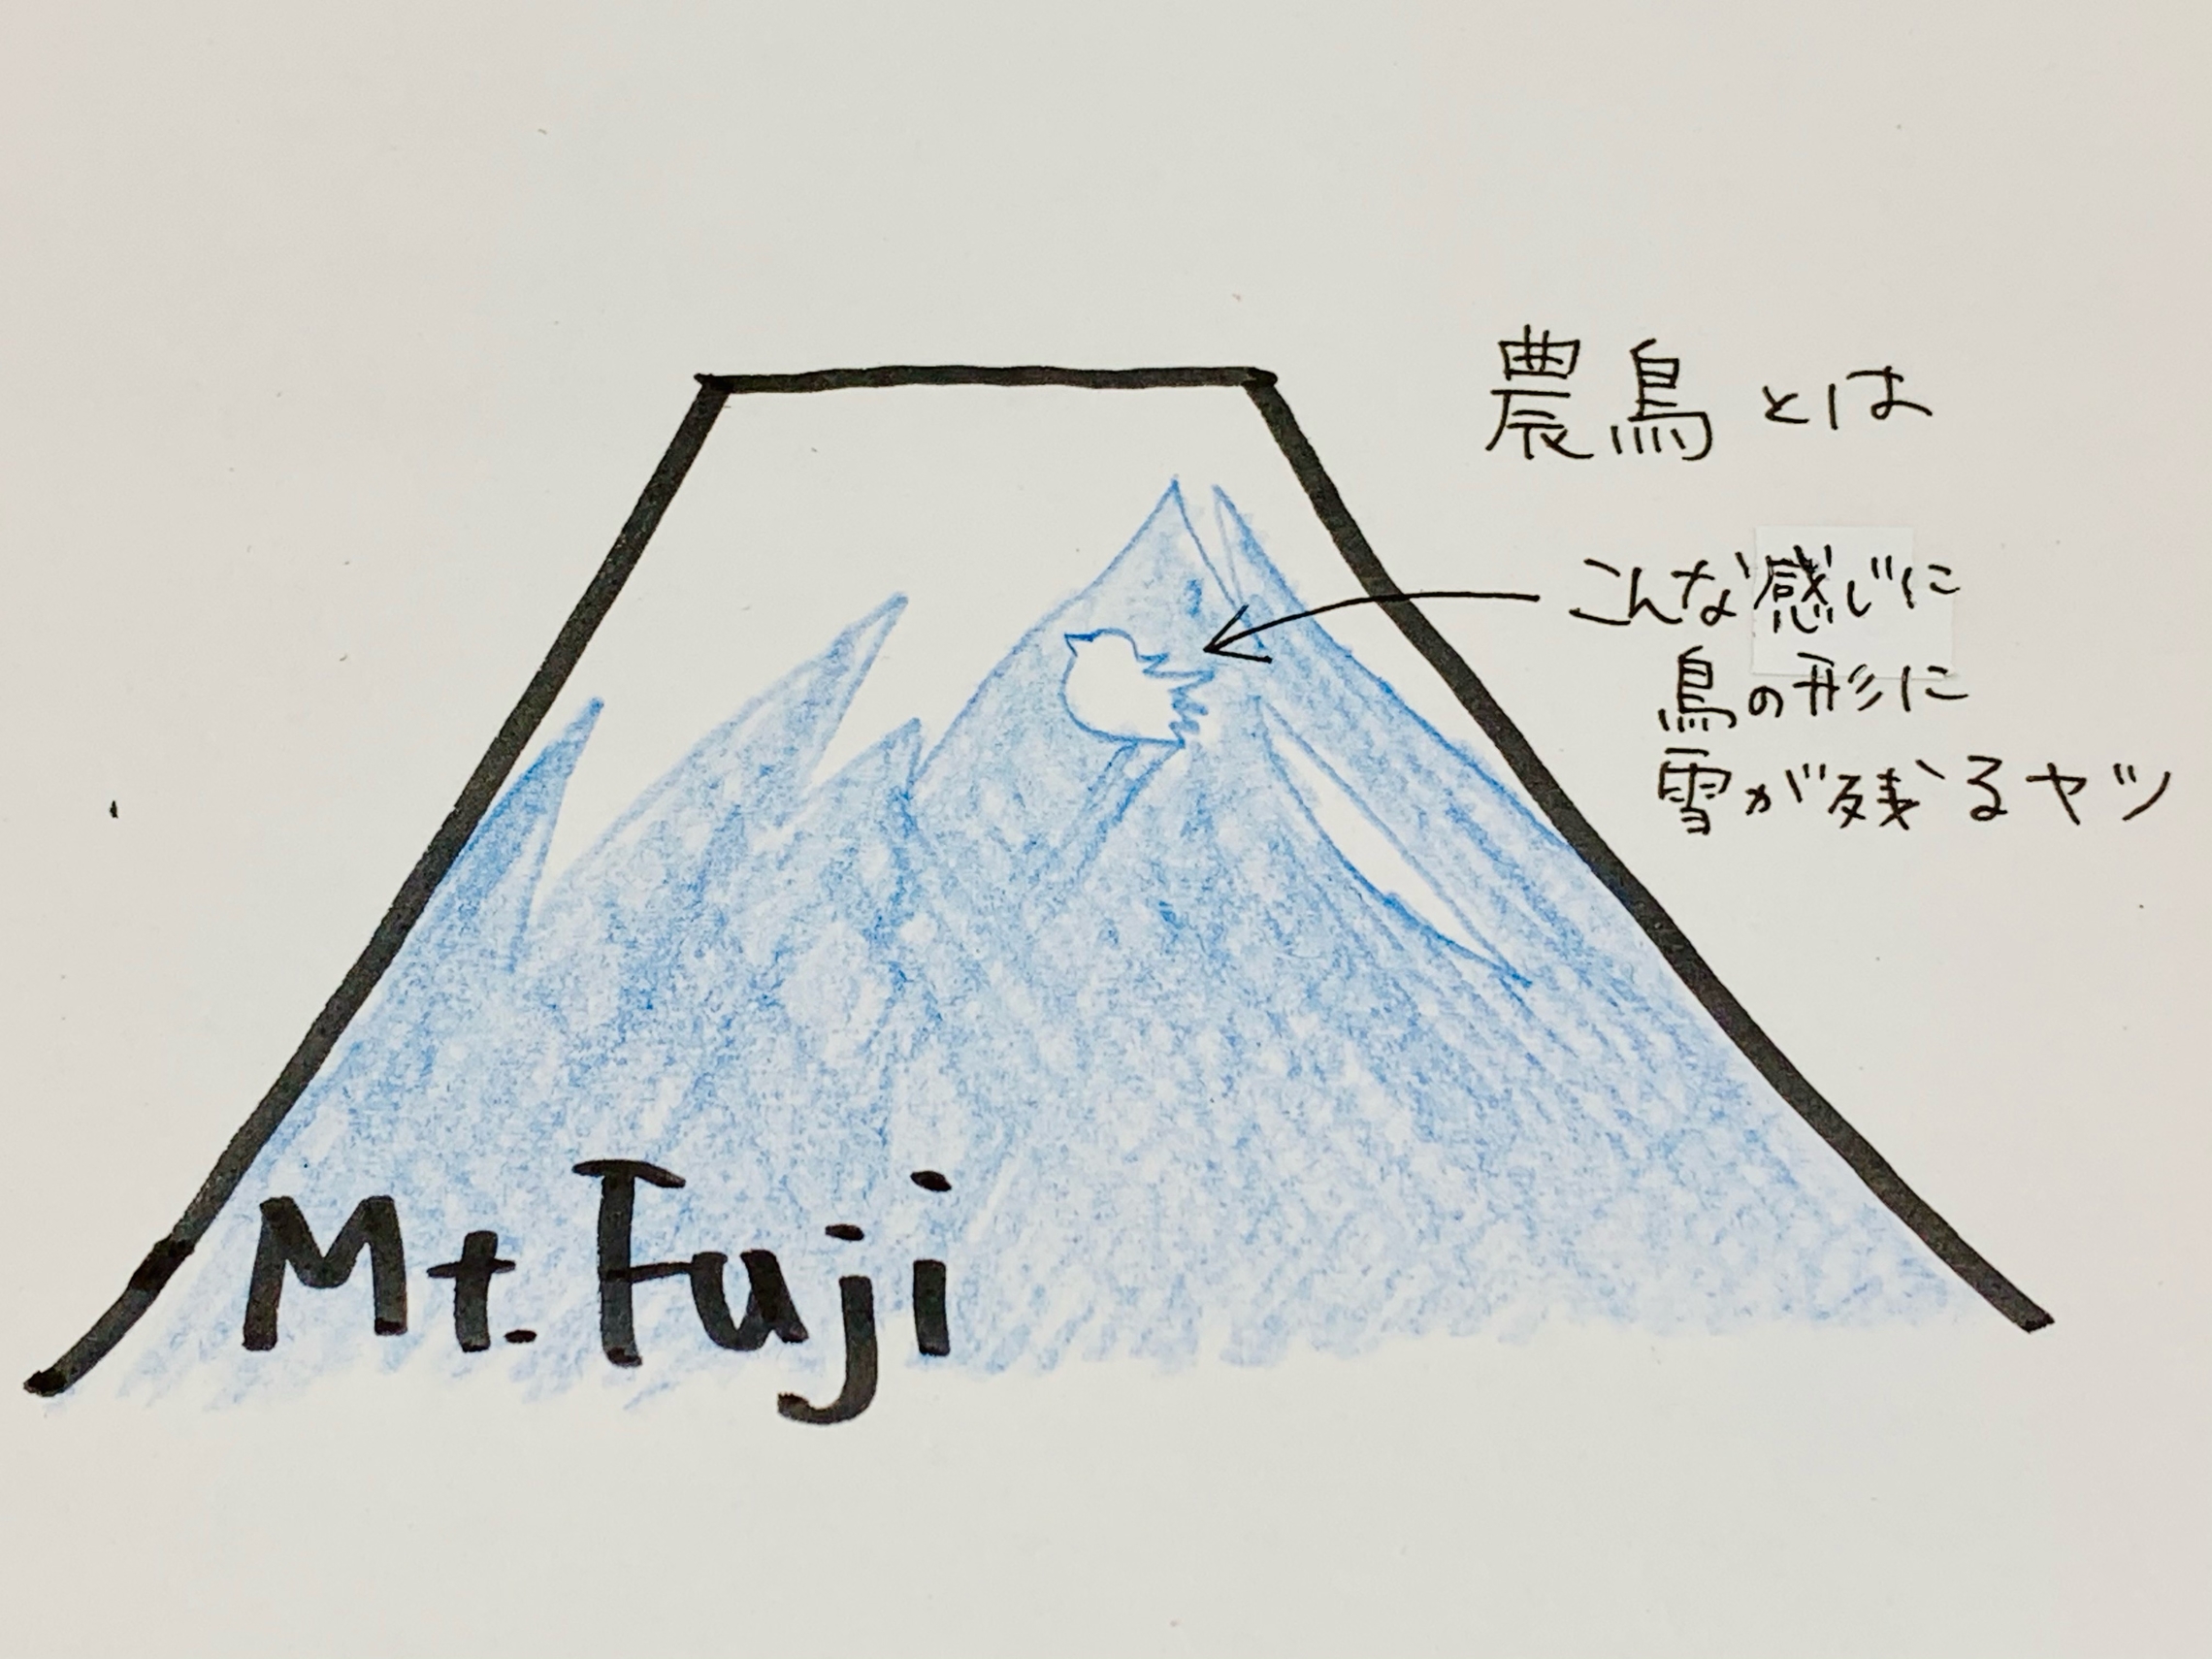 農鳥とは
こんな感じに
鳥の形に
雪が残るヤツ
Mt. Fuji